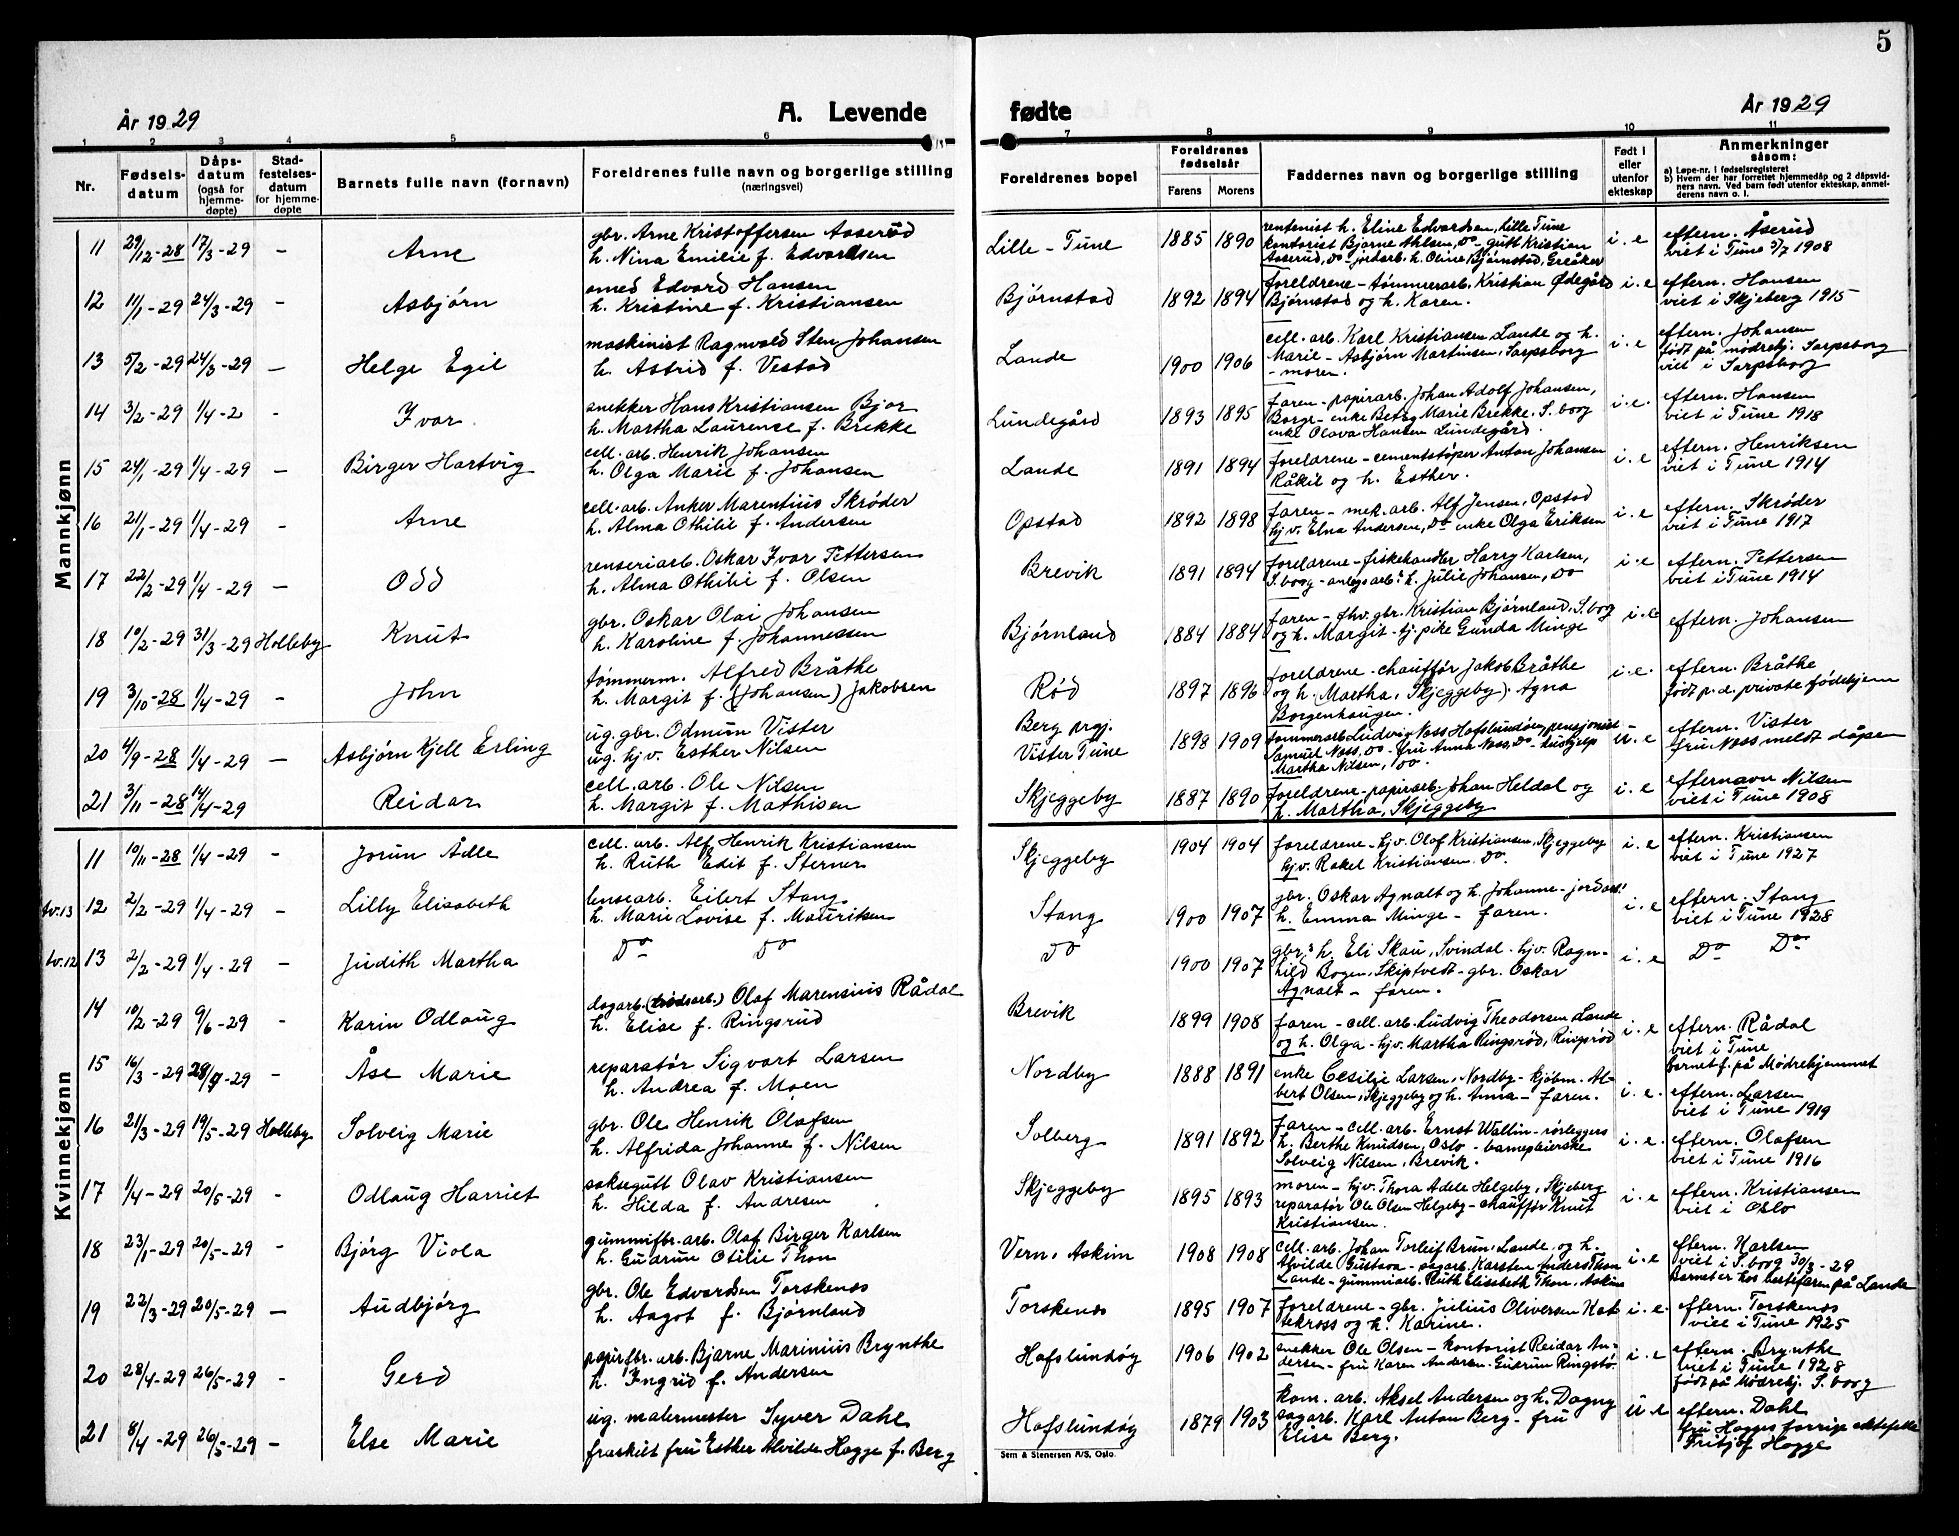 5
År 1929
A. Levende
fødte
År 1929
1 2 3 4 5 6 7 8 9 10 11
Nr.
Fødsels-
datum
Dåps-
datum
(også for
hjemme-
døpte)
Stad-
festelses-
datum
for hjemme-
døpte
Barnets fulle navn (fornavn)
Foreldrenes fulle navn og borgerlige stilling
(næringsvei)
Foreldrenes bopel
Foreldrenes
fødselsår
Farens Morens
Faddernes navn og borgerlige stilling
Født i
eller
utenfor
ekteskap
Anmerkninger
såsom:
a) Løpe-nr. i fødselsregisteret
b) Hvem der har forrettet hjemmedåp og 2 dåpsvid-
ners navn. Ved barn født utenfor ekteskap, anmel-
derens navn o. l.
Mannkjønn
11 29/12-28 17/3-29 - Arne
gbr. Arne Kristoffersen Aaserød
h. Nina Emilie f. Edvardsen
Lille-Tune 1885 1890
rentenist h. Eline Edvardsen, Lille Tune
kontorist Bjarne Ahlsen, do - gutt Kristian
Aaserud, do - jordarb. h. Oline Bjørnstad, Greåker
i.e eftern. Åserud
viet i Tune 3/7 1908
12 11/1-29 24/3-29 - Asbjørn
smed Edvard Hansen
h. Kristine f. Kristiansen
Bjørnstad 1892 1894
foreldrene - tømmerarb. Kristian Ødegård
Bjørnstad og h. Karen.
i.e eftern. Hansen
viet i Skjeberg 1915
13 5/2-29 24/3-29 - Helge Egil
maskinist Ragnvald Sten Johansen
h. Astrid f. Vestad
Lande 1900 1906
cell. arb. Karl Kristiansen Lande og h.
Marie - Asbjørn Martinsen, Sarpsborg
- moren.
i.e eftern. Johansen
født på mødrehj. Sarpsborg
viet i Sarpsborg
14 3/2-29 1/4-2 - Ivar
snekker Hans Kristiansen Bjor
h. Martha Laurense f. Brekke
Lundegård 1893 1895
faren - papirarb. Johan Adolf Johansen,
Borge - enke Betsy Marie Brekke. S.borg
enke Olava Hansen Lundegård.
i.e. eftern. Hansen
viet i Tune 1918
15 24/1-29 1/4-29 - Birger Hartvig
cell. arb. Henrik Johansen
h. Olga Marie f. Johansen
Lande 1891 1894
foreldrene - cementstøper Anton Johansen
Råkil og h. Esther.
i.e eftern. Henriksen
viet i Tune 1914
16 21/1-29 1/4-29 - Arne
cell. arb. Anker Marentius Skrøder
h. Alma Othilie f. Andersen
Opstad 1892 1898
faren - mek. arb. Alf Jensen, Opstad
hj.v. Elna Andersen, do enke Olga Eriksen
i.e eftern. Skrøder
viet i Tune 1917
17 22/2-29 1/4-29 - Odd
renseriarb. Oskar Ivar Pettersen
h. Alma Othilie f. Olsen
Brevik 1891 1894
foreldrene - fiskehandler Harry Karlsen,
S.borg - anlegsarb.s h. Julie Johansen, do
i.e eftern. Pettersen
viet i Tune 1914
18 10/2-29 31/3-29 Holleby Knut
gbr. Oskar Olai Johansen
h. Karoline f. Johannessen
Bjørnland 1884 1884
faren - fhv. gbr. Kristian Bjørnland, S.borg
og h. Margit - tj. pike Gunda Minge
i.e eftern. Johansen
19 3/10-28 1/4-29 - John
tømmerm. Alfred Bråthe
h. Margit f. (Johansen) Jakobsen
Rød 1897 1896
foreldrene - chauffør Jakob Bråthe
og h. Martha, Skjeggeby). Agna
Borgenhaugen.
i.e. eftern. Bråthe
født p.d. private fødehjem
20 4/9-28 1/4-29 - Asbjørn Kjell Erling
ug. gbr. Odmum Vister
ug. hj.v. Esther Nilsen
Berg prgj.
Vister Tune 1898 1909
tømmerarb Ludvig Næss Hafslundsøen, pensjonist
Samuel Næss, do - fru Anna Næss, do - hushjelp
Martha Nilsen, do.
u.e eftern. Vister
fru Næss meldt dåpen
21 3/11-28 14/4-29 Reidar
cell. arb. Ole Nilsen
h. Margit f. Mathisen
Skjeggeby 1887 1890
foreldrene - papirarb. Johan Heldal og
h. Martha, Skjeggeby
i.e efternavn Nilsen
viet i Tune 1908
Kvinnekjønn
11 10/11-28 1/4-29 - Jorun Adle
cell. arb. Alf Henrik Kristiansen
h. Ruth Edit f. Sterner
Skjeggeby 1904 1904
foreldrene - hj.v. Olof Kristiansen, Skjeggeby
hj.v. Rakel Kristiansen. do.
i.e eftern. Kristiansen
viet i Tune 1927
tv.13 12 2/2-29 1/4-29 - Lilly Elisabeth
lensearb. Eilert Stang
h. Marie Lovise f. Mauritsen
Stang 1900 1907
gbr. Oskar Agnalt og h. Johanne - jordarb.s
h. Emma Minge - faren.
i.e eftern. Stang
viet i Tune 1928
tv.12 13 2/2-29 1/4-29 - Judith Martha
Do Do
do 1900 1907
gbr.s h. Eli Skau, Svindal - hj.v. Ragn-
hild Bogen, Skiptvedt - gbr. Oskar
Agnalt - faren.
i.e Do Do
14 10/2-29 9/6-29 - Karin Odlaug
dagarb. Olaf Marensius Rådal
h. Elise f. Ringsrud
Brevik 1899 1908
faren - cell. arb. Ludvig Theodorsen Lande
og h. Olga - hj.v. Martha Ringsrød, Ringsrød
i.e eftern. Rådal
viet i Tune
barnet f. på Mødrehjemmet
15 16/3-29 28/4-29 - Åse Marie
reparatør Sigvart Larsen
h. Andrea f. Moen
Nordby 1888 1891
enke Cesilje Larsen, Nordby - kjøbm. Al-
bert Olsen, Skjeggeby og h. Anna - faren.
i.e. eftern. Larsen
viet i Tune 1919
16 21/3-29 19/5-29 Holleby Solveig Marie
gbr. Ole Henrik Olafsen
h. Alfrida Johanne f. Nilsen
Solberg 1891 1892
faren - cell. arb. Ernst Wallin - rørleggers
h. Berthe Knudsen, Oslo - barnepleierske
Solveig Nilsen, Brevik.
i.e. eftern. Olafsen
viet i Tune 1916
17 1/4-29 20/5-29 - Odlaug Harriet
saksegutt Olav Kristiansen
h. Hilda f. Andresen
Skjeggeby 1895 1893
moren - hj.v. Thora Adele Helgeby, Skjeberg
reparatør Ole Olsen Helgeby - chauffør Knut
Kristiansen.
i.e eftern. Kristiansen
viet i Oslo
18 23/1-29 20/5-29 - Bjørg Viola
gummifbr. arb. Olaf Birger Karlsen
h. Gudrun Otilie Thon
Vern, Askim 1908 1908
cell. arb. Johan Torleif Brun, Lande og h.
Alvilde Gustava - sagarb. Karsten Anders Thon
Lande - gummiarb. Ruth Elisabeth Thon, Askim
i.e eftern. Karlsen
viet i S.borg 30/3-29
Barnet er hos bestefaren på Lande
19 22/3-29 20/5-29 - Audbjørg
gbr. Ole Edvardsen Torskenæs
h. Aagot f. Bjørnland
Torskenæs 1895 1907
foreldrene - gbr. Julius Oliversen Kat-
tekrass og h. Karine.
i.e. eftern. Torskenæs
viet i Tune 1925
20 28/4-29 26/5-29 - Gerd
papirfbr. arb. Bjarne Marinius Brynthe
h. Ingrid f. Andersen
Hafslundsøy 1906 1902
snekker Ole Olsen - kontorist Reidar An-
dersen - fru Karen Andersen - Gudrun Ringstø.
i.e eftern. Brynthe
viet i Tune 1928
født på Mødrehj. S.borg
21 8/4-29 26/5-29 - Else Marie
ug. malermester Syver Dahl
fraskilt fru Esther Alvilde Hogge f. Berg
Hafslundsøy 1879 1903
kom. arb. Aksel Andersen og h. Dagny
sagarb. Karl Anton Berg - fru
Elise Berg.
u.e eftern. Dahl
fru Hogges forrige ektefelle
Fritjof Hogge
Sem & Stenersen A/S, Oslo.